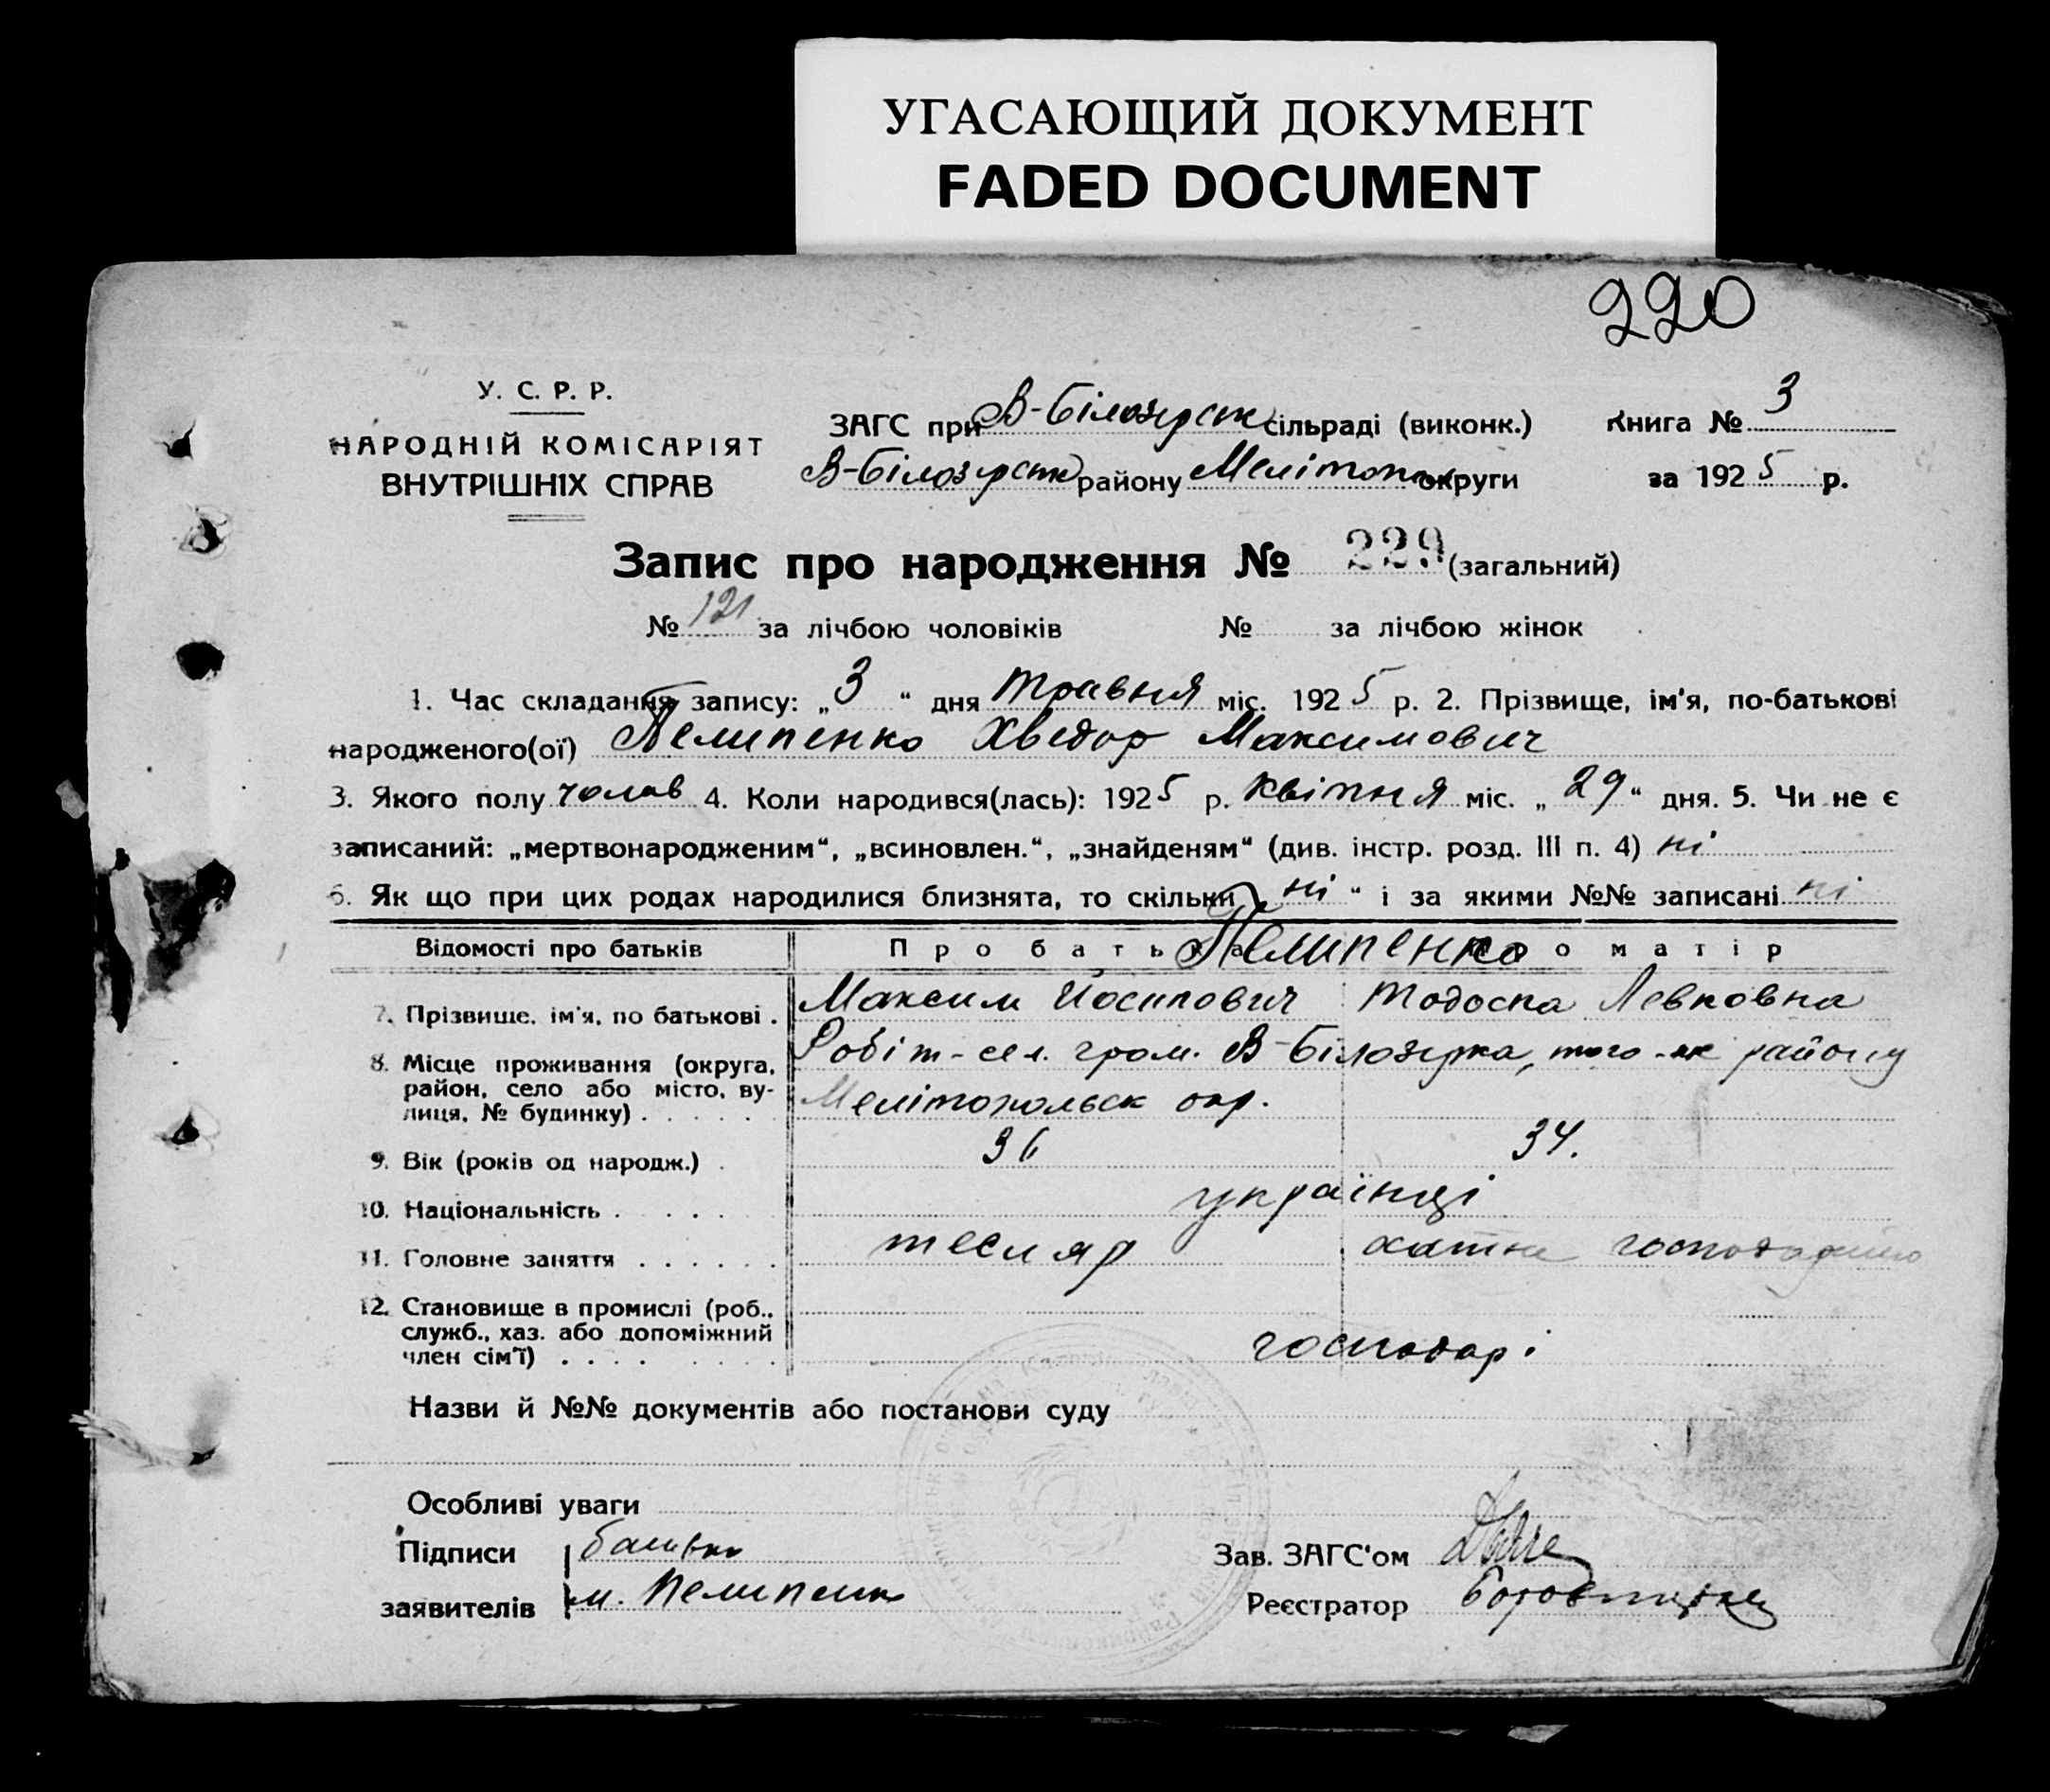 УГАСАЮЩИЙ ДОКУМЕНТ
FADED DOCUMENT
220
У. С. Р. Р.
НАРОДНІЙ КОМІСАРІЯТ
ВНУТРІШНІХ СПРАВ
ЗАГС при В-Білозерськ сільраді (виконк.)
В-Білозерськ району Мелітоп округи
Книга № 3
за 1925 р.
Запис про народження № 229 (загальний)
№ 121 за лічбою чоловіків № за лічбою жінок
1. Час складання запису: „3“ дня травня міс. 1925 р. 2. Прізвище, ім'я, по-батькові
народженого(ої) Пелипенко Хведор Максимович
3. Якого полу чолов 4. Коли народився(лась): 1925 р. квітня міс. „29“ дня. 5. Чи не є
записаний: „мертвонародженим“, „всиновлен.“, „знайденям“ (див. інстр. розд. III п. 4) ні
6. Як що при цих родах народилися близнята, то скільки „ні“ і за якими №№ записані ні
Відомості про батьків Про батька Про матір
Пелипенко
7. Прізвище, ім'я, по батькові . Максим Йосипович Тодоска Левковна
8. Місце проживання (округа, Робіт-сел. гром. В-Білозерка, того-же району
район, село або місто, ву-
лиця, № будинку) . . . . . Мелітопольськ окр.
9. Вік (років од народж.) . 36 34.
10. Національність . . . . . українці
11. Головне заняття . . . . . . тесляр хатне
12. Становище в промислі (роб.,
служб., хаз. або допоміжний
член сім'ї) . . . . . . . господарі
Назви й №№ документів або постанови суду
Особливі уваги
Підписи батько
заявителів м. Пелипенко
Зав. ЗАГС'ом
Реєстратор